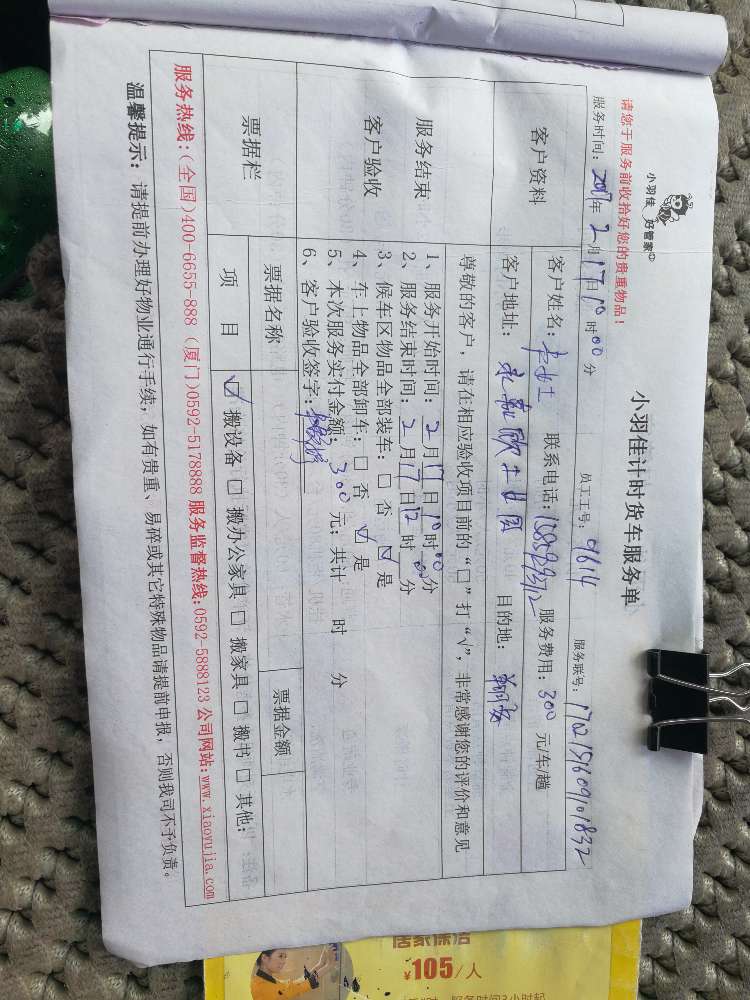 小羽佳 好管家
小羽佳计时货车服务单
请您于服务前收拾好您的贵重物品！
服务时间：2017年2月17日10时00分 员工工号：9614 服务联号：1702151609101832
客户资料
客户姓名： 女士 联系电话： 服务费用：300元/车/趟
客户地址： 目的地：翔安
服务结束
客户验收
尊敬的客户，请在相应验收项目前的“□”打“√”，非常感谢您的评价和意见
1、服务开始时间：2月17日10时00分
2、服务结束时间：2月17日12时00分
3、候车区物品全部装车：□ 否 ☑ 是
4、车上物品全部卸车：□ 否 ☑ 是
5、本次服务实付金额：300元；共计 时 分
6、客户验收签字：
票据栏
票据名称 票据金额
项目 ☑ 搬设备 □ 搬办公家具 □ 搬家具 □ 搬书 □ 其他：
服务热线：(全国)400-6655-888 (厦门)0592-5178888 服务监督热线：0592-5888123 公司网站：www.xiaoyujia.com
温馨提示：请提前办理好物业通行手续，如有贵重、易碎或其它特殊物品请提前申报，否则我司不予负责。
居家保洁
¥105/人